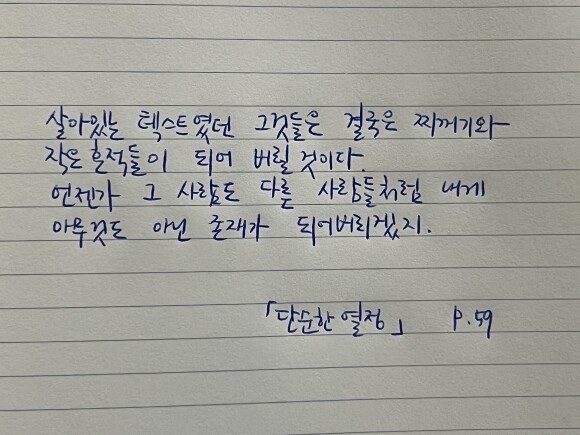 살아있는 텍스트였던 그것들은 결국은 찌꺼기와
작은 흔적들이 되어 버릴 것이다.
언젠가 그 사람도 다른 사람들처럼 내게
아무것도 아닌 존재가 되어버리겠지.
「단순한 열정」 P.59